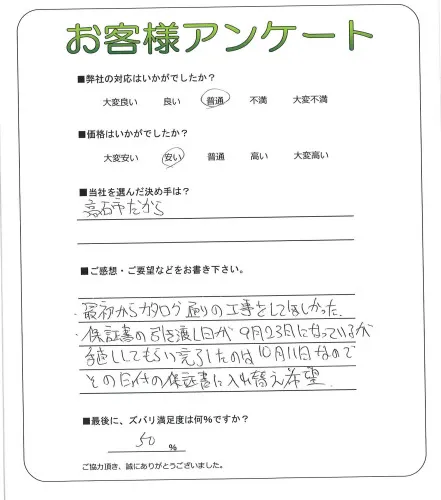 お客様アンケート
■弊社の対応はいかがでしたか?
大変良い 良い 普通 不満 大変不満
■価格はいかがでしたか?
大変安い 安い 普通 高い 大変高い
■当社を選んだ決め手は?
高石市だから
■ご感想・ご要望などをお書き下さい。
・最初からカタログ通りの工事をしてほしかった.
・保証書の引き渡し日が9月23日になっているが
手直ししてもらい完了したのは10月11日なので
その日付の保証書に入れ替え希望
■最後に、ズバリ満足度は何%ですか?
50 %
ご協力頂き、誠にありがとうございました。